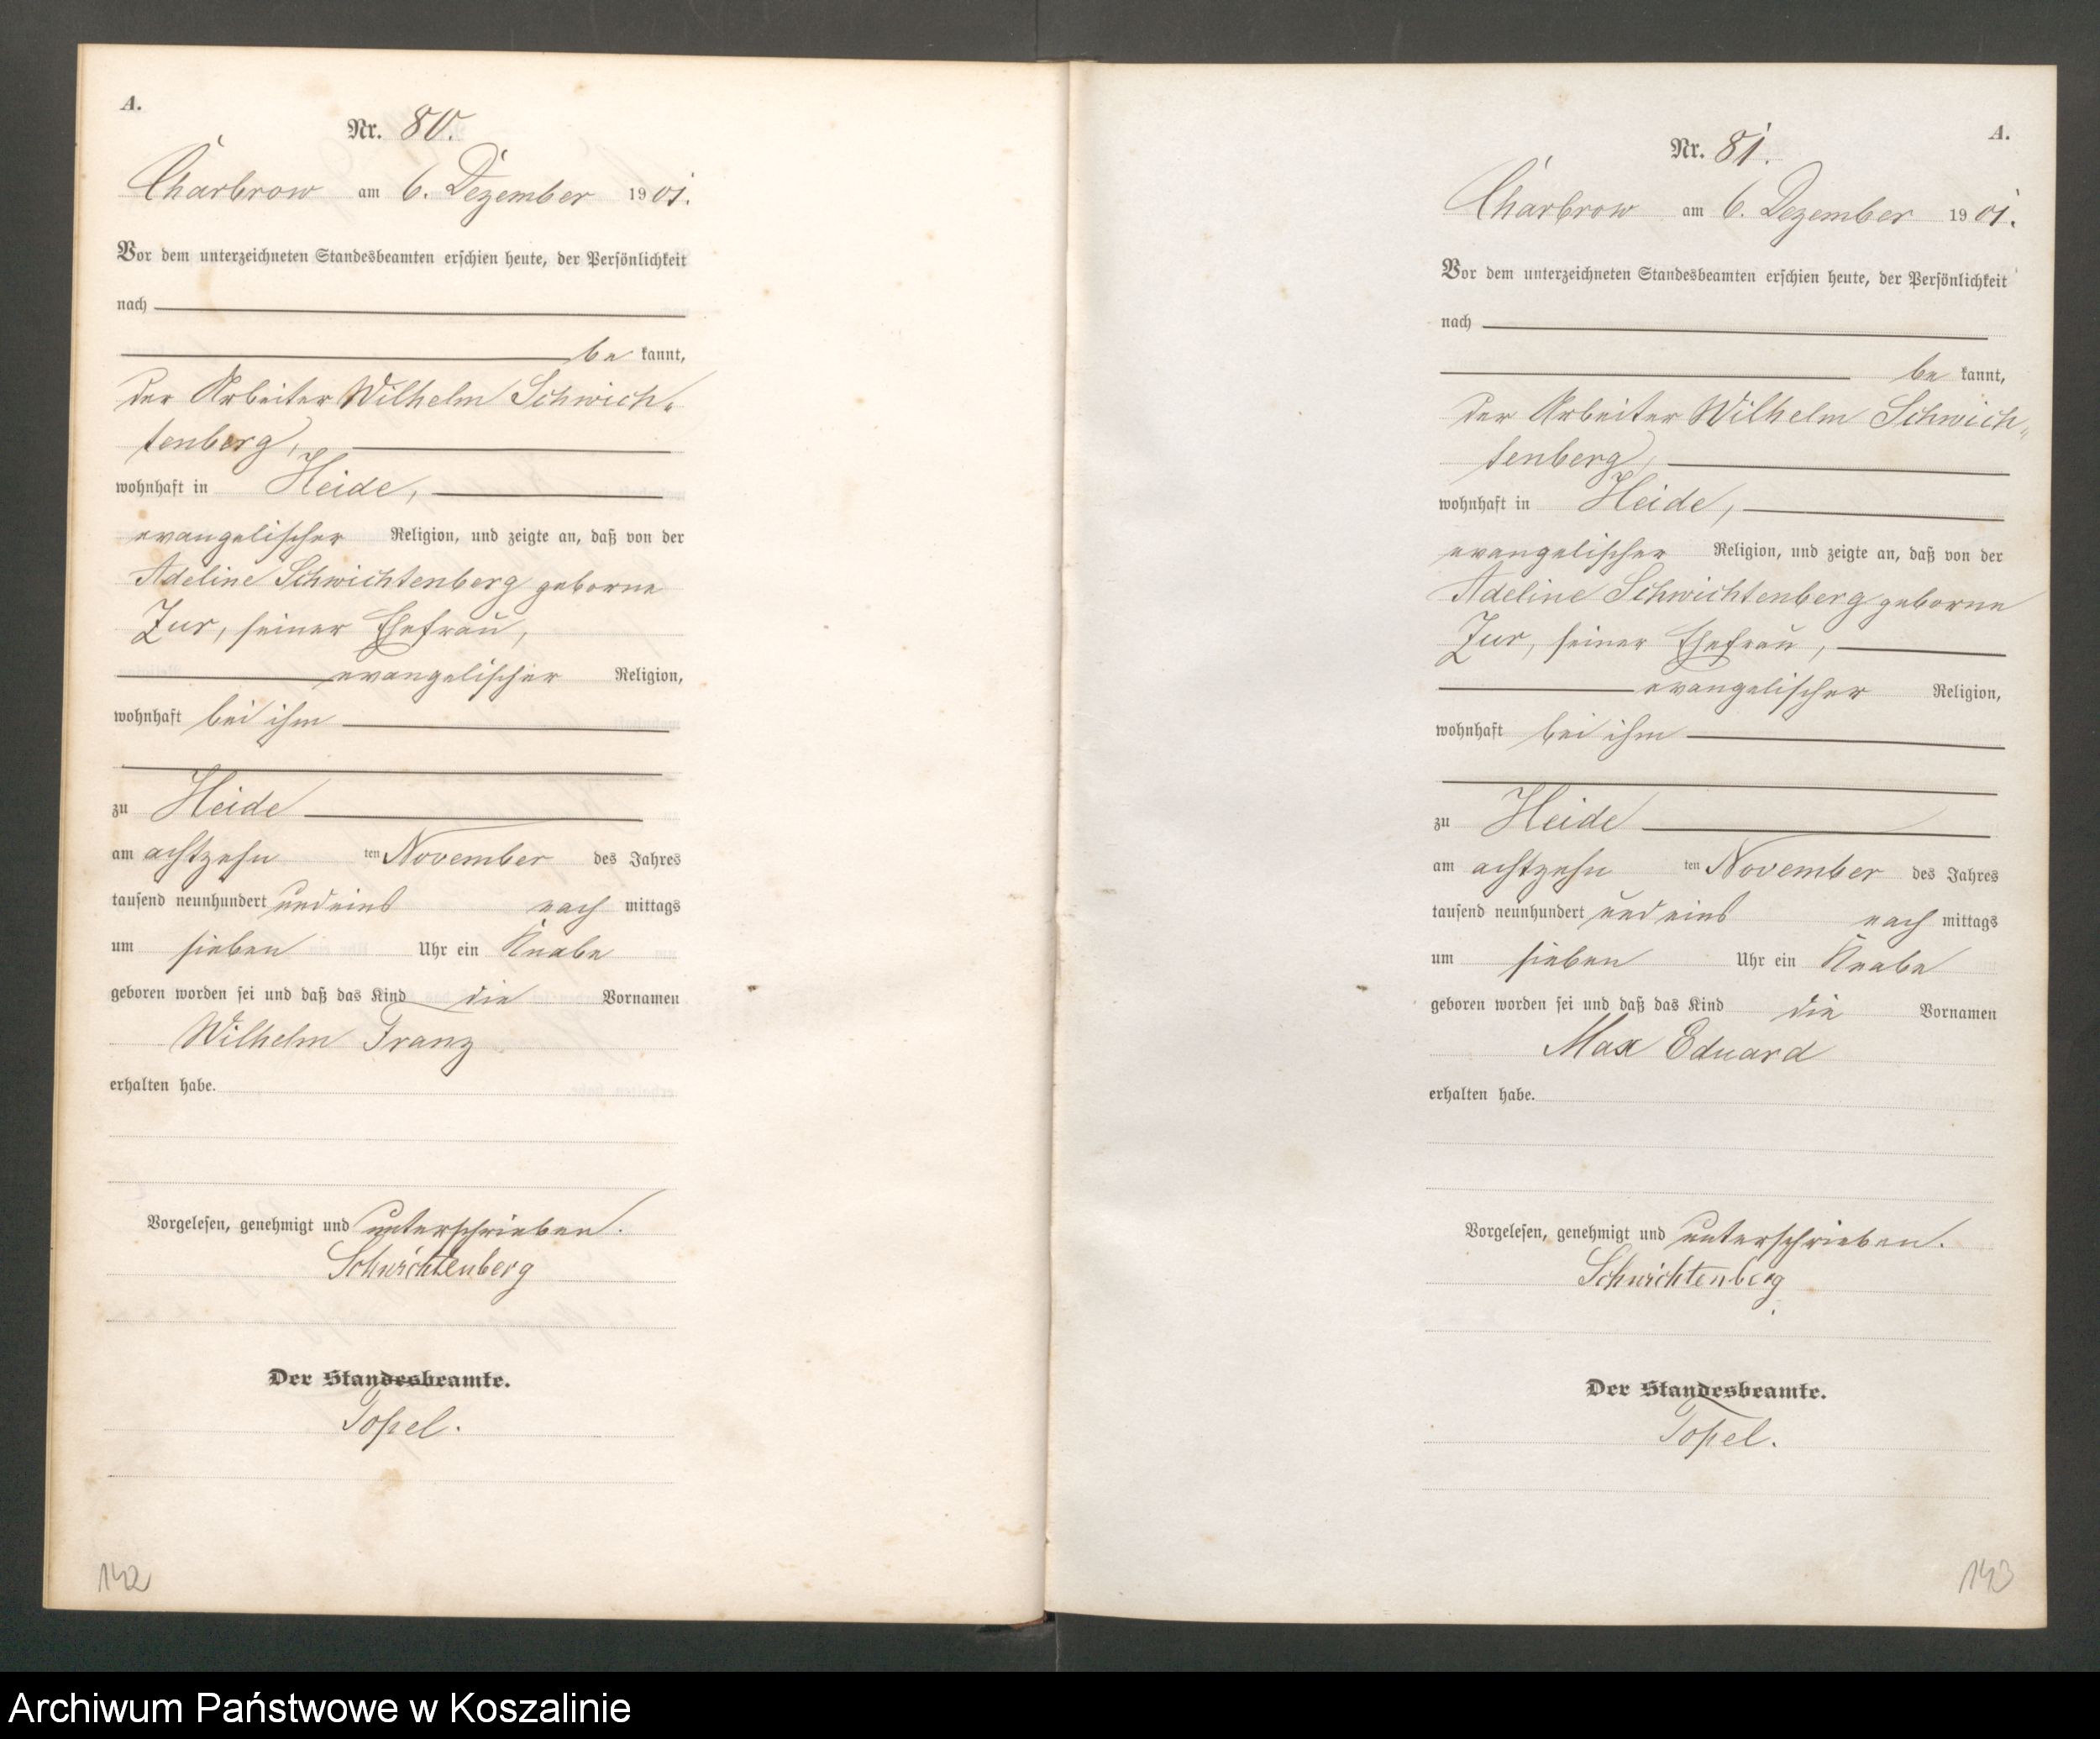 A.
Nr. 80.
Charbrow am 6. Dezember 1901.
Vor dem unterzeichneten Standesbeamten erschien heute, der Persönlichkeit
nach
be kannt,
der Arbeiter Wilhelm Schwich-
tenberg,
wohnhaft in Heide,
evangelischer Religion, und zeigte an, daß von der
Adeline Schwichtenberg geborne
Zur, seiner Ehefrau,
evangelischer Religion,
wohnhaft bei ihm
zu Heide
am achtzehn ten November des Jahres
tausend neunhundert und eins nach mittags
um sieben Uhr ein Knabe
geboren worden sei und daß das Kind die Vornamen
Wilhelm Franz
erhalten habe.
Vorgelesen, genehmigt und unterschrieben.
Schwichtenberg
Der Standesbeamte.
Topel.
142
A.
Nr. 81.
Charbrow am 6. Dezember 1901.
Vor dem unterzeichneten Standesbeamten erschien heute, der Persönlichkeit
nach
be kannt,
der Arbeiter Wilhelm Schwich-
tenberg,
wohnhaft in Heide,
evangelischer Religion, und zeigte an, daß von der
Adeline Schwichtenberg geborne
Zur, seiner Ehefrau,
evangelischer Religion,
wohnhaft bei ihm
zu Heide
am achtzehn ten November des Jahres
tausend neunhundert und eins nach mittags
um sieben Uhr ein Knabe
geboren worden sei und daß das Kind die Vornamen
Max Eduard
erhalten habe.
Vorgelesen, genehmigt und unterschrieben.
Schwichtenberg
Der Standesbeamte.
Topel.
143
Archiwum Państwowe w Koszalinie